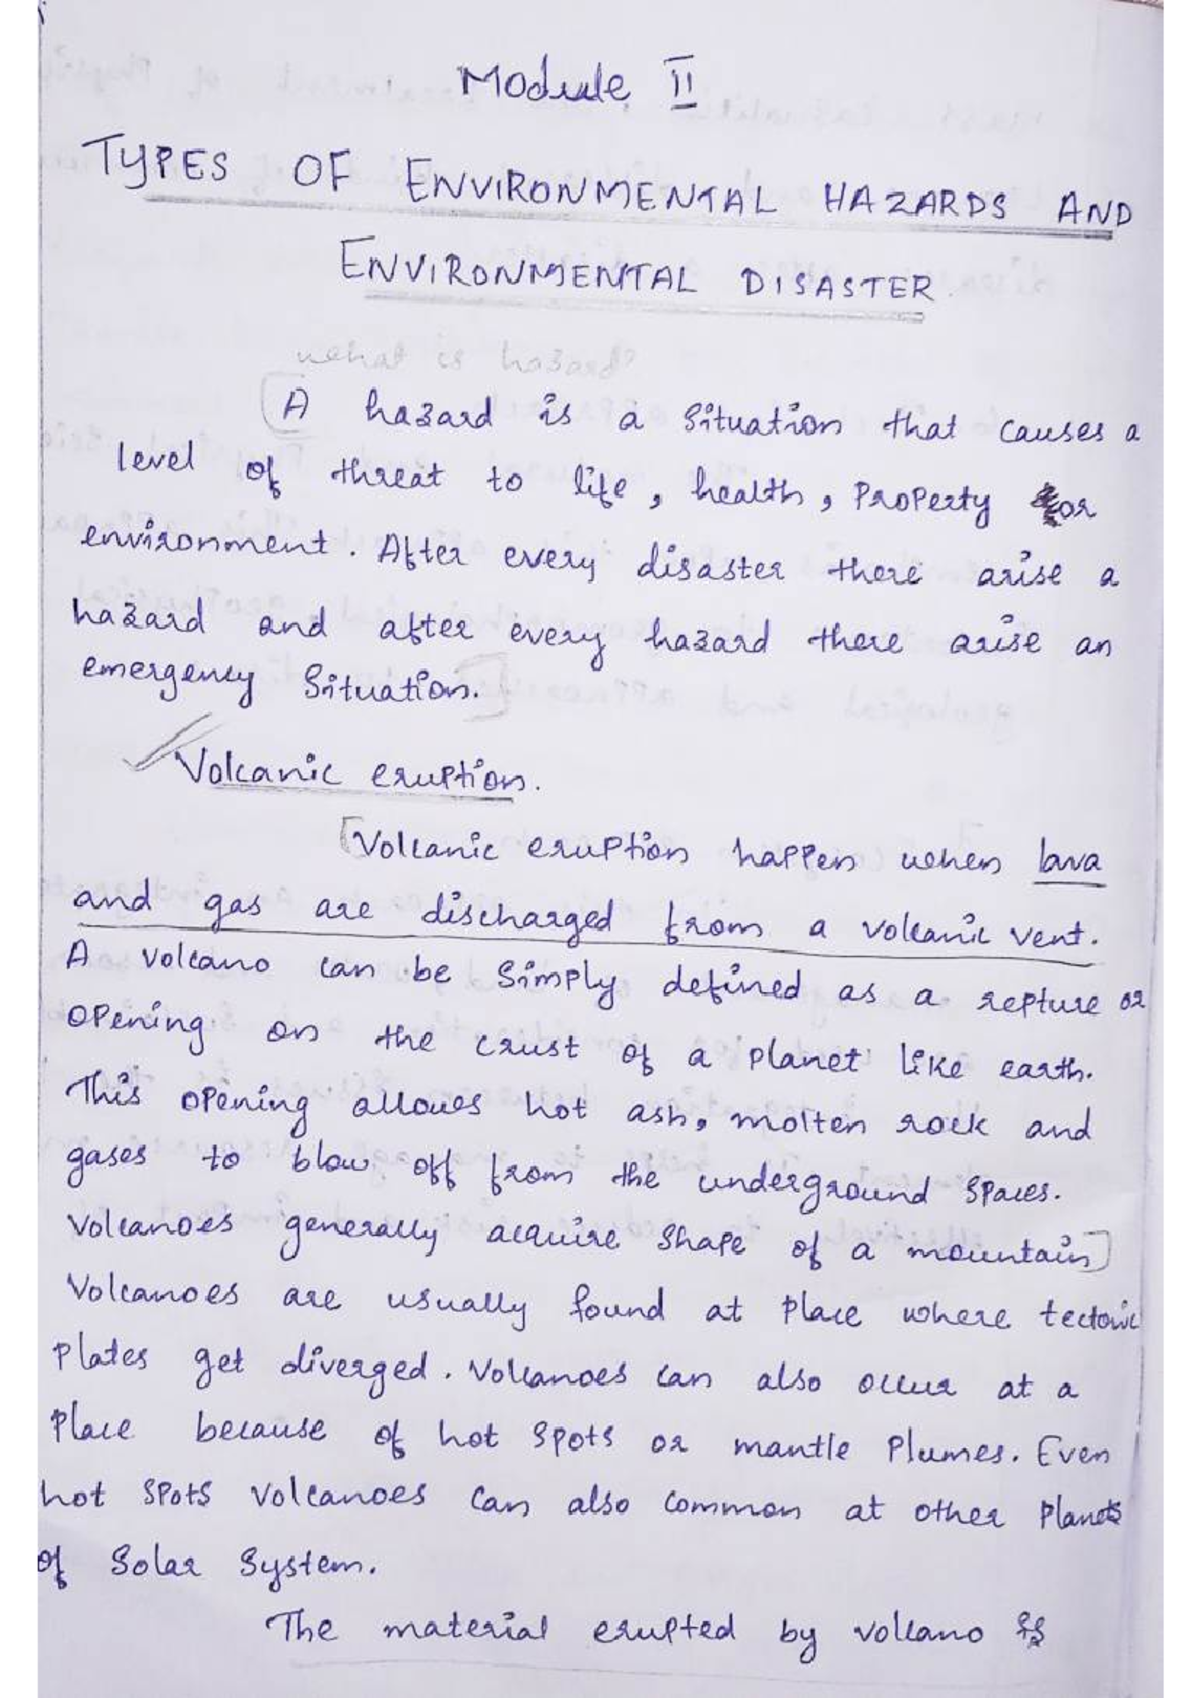 Module II
TYPES OF ENVIRONMENTAL HAZARDS AND
ENVIRONMENTAL DISASTER.
what is hazard?
A hazard is a situation that causes a
level of threat to life, health, Property or
environment. After every disaster there arise a
hazard and after every hazard there arise an
emergency Situation.
Volcanic eruption.
Volcanic eruption happen when lava
and gas are discharged from a volcanic vent.
A volcano can be Simply defined as a repture or
opening on the crust of a planet like earth.
This opening allows hot ash, molten rock and
gases to blow off from the underground spaces.
Volcanoes generally acquire shape of a mountain
Volcanoes are usually found at place where tectonic
Plates get diverged. Volcanoes can also occur at a
Place because of hot spots or mantle Plumes. Even
hot spots volcanoes can also common at other Planets
of Solar System.
The material erupted by volcano is